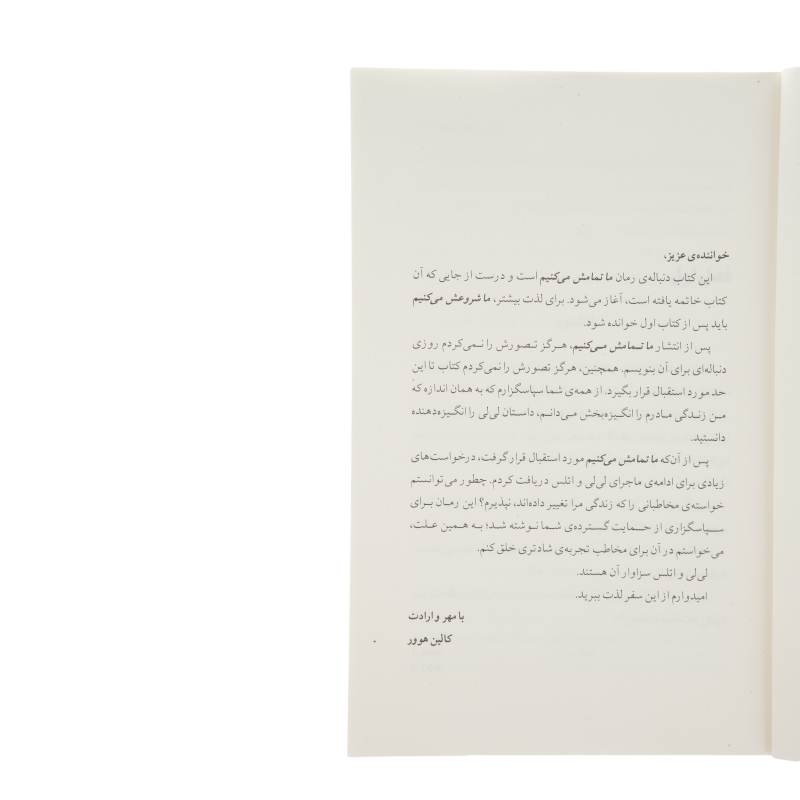 خواننده‌ی عزیز،
این کتاب دنباله‌ی رمان ما تمامش می‌کنیم است و درست از جایی که آن
کتاب خاتمه یافته است، آغاز می‌شود. برای لذت بیشتر، ما شروعش می‌کنیم
باید پس از کتاب اول خوانده شود.
پس از انتشار ما تمامش می‌کنیم، هرگز تصورش را نمی‌کردم روزی
دنباله‌ای برای آن بنویسم. همچنین، هرگز تصورش را نمی‌کردم کتاب تا این
حد مورد استقبال قرار بگیرد. از همه‌ی شما سپاسگزارم که به همان اندازه که
من زندگی مادرم را انگیزه‌بخش می‌دانم، داستان لی‌لی را انگیزه‌دهنده
دانستید.
پس از آن‌که ما تمامش می‌کنیم مورد استقبال قرار گرفت، درخواست‌های
زیادی برای ادامه‌ی ماجرای لی‌لی و اتلس دریافت کردم. چطور می‌توانستم
خواسته‌ی مخاطبانی را که زندگی مرا تغییر داده‌اند، نپذیرم؟ این رمان برای
سپاسگزاری از حمایت گسترده‌ی شما نوشته شد؛ به همین علت،
می‌خواستم در آن برای مخاطب تجربه‌ی شادتری خلق کنم.
لی‌لی و اتلس سزاوار آن هستند.
امیدوارم از این سفر لذت ببرید.
با مهر و ارادت
کالین هوور